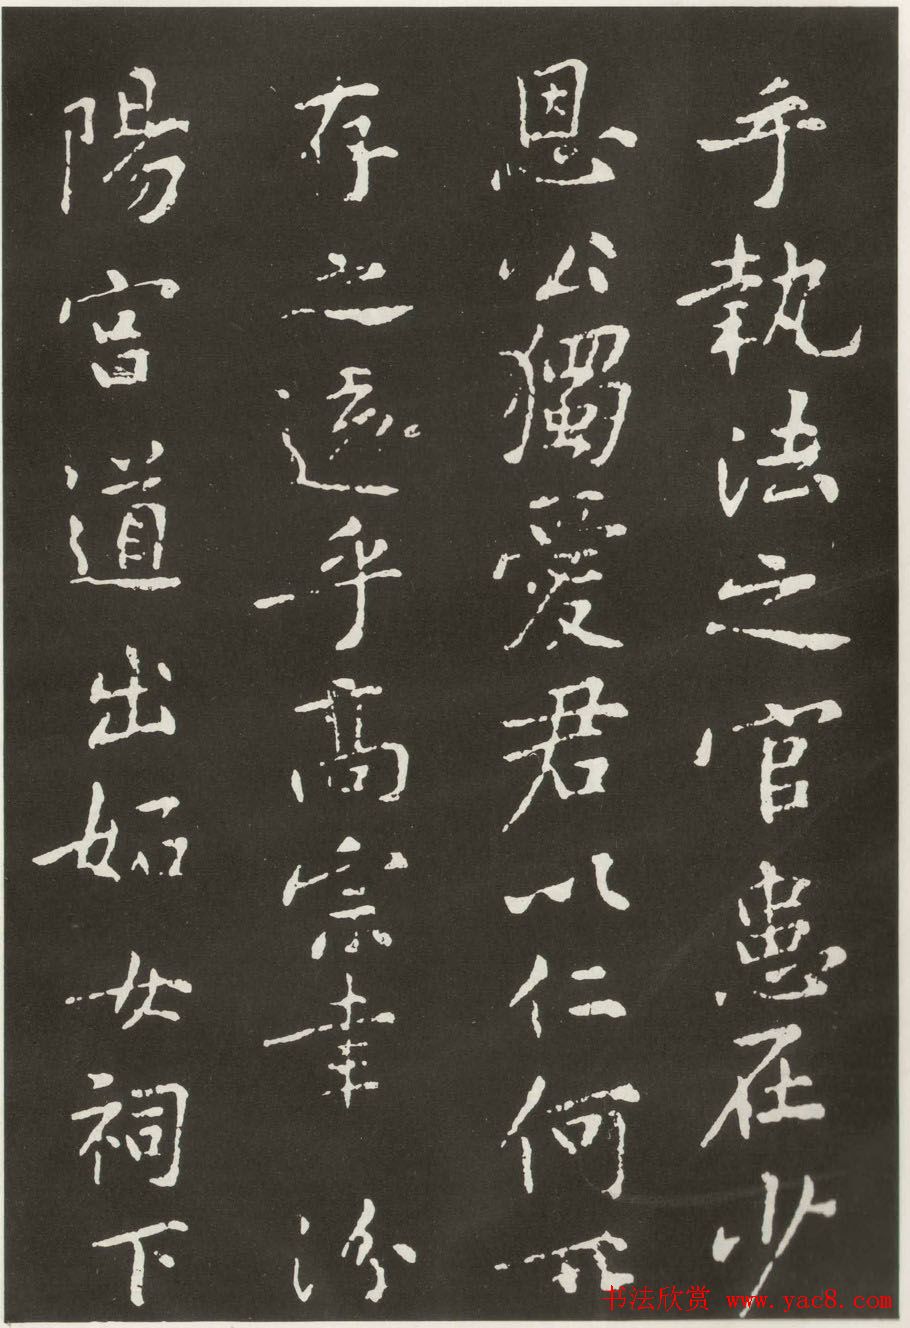 乎執法之官患在少
恩公獨愛君以仁何所
存之遠乎高宗幸汾
陽宮道出妬女祠下
书法欣赏 www.yac8.com